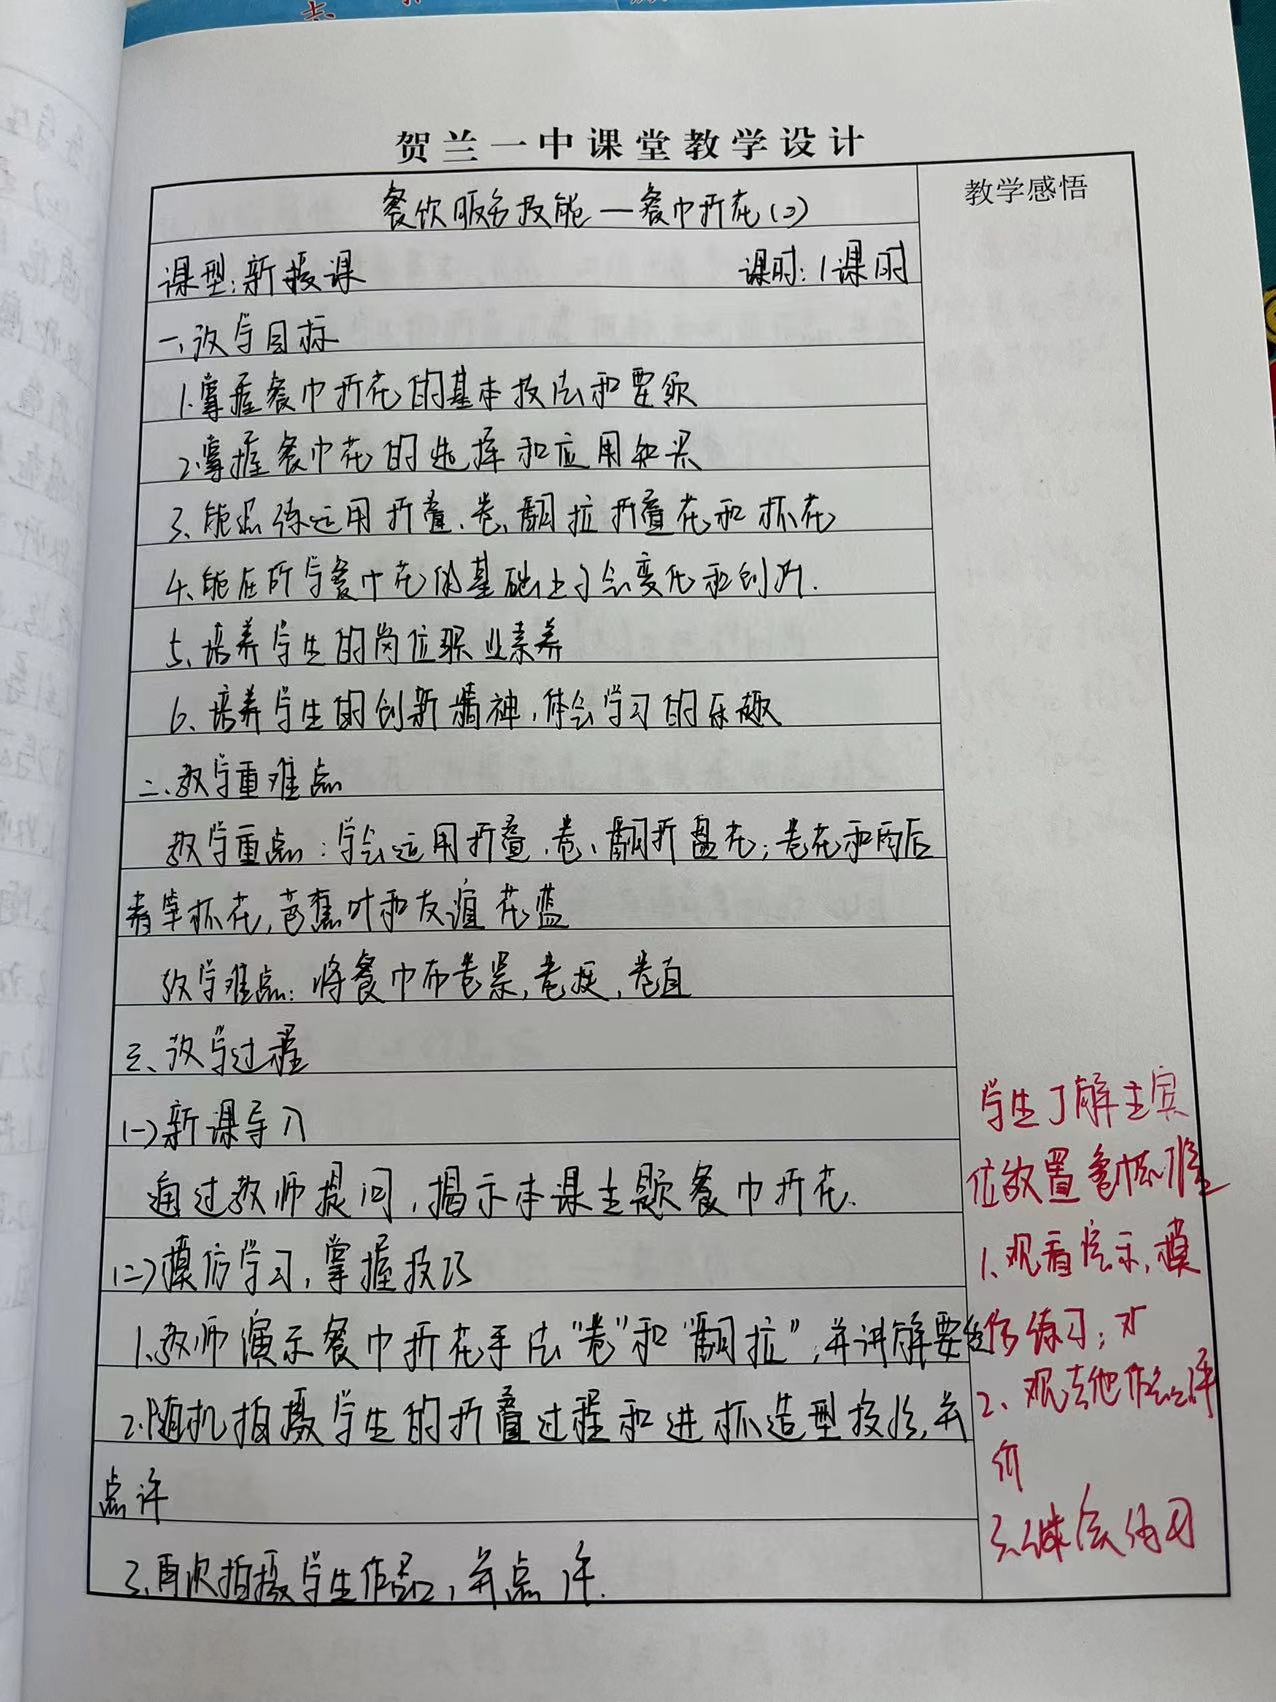 贺兰一中课堂教学设计
教学感悟
餐饮服务技能—餐巾折花(2)
课型:新授课 课时:1课时
一、教学目标
1.掌握餐巾折花的基本技法和要领
2.掌握餐巾花的选择和应用知识
3、能熟练运用折叠、卷、翻拉折叠花和杯花
4、能在所学餐巾花的基础上学会变化和创新.
5、培养学生的岗位职业素养
6、培养学生的创新精神,体会学习的乐趣
二、教学重难点
教学重点:学会运用折叠、卷、翻折盘花;卷花和两后
者等杯花,芭蕉叶和友谊花蓝
教学难点:将餐巾布卷紧,卷挺,卷直
三、教学过程
(一)新课导入
通过教师提问,揭示本课主题餐巾折花.
(二)模仿学习,掌握技巧
1.教师演示餐巾折花手法“卷”和“翻拉”,并讲解要领
2.随机拍摄学生的折叠过程和进杯造型技法,并
点评
3、再次拍摄学生作品,并点评.
学生了解主宾
位放置餐巾标准
1、观看演示,模
仿练习;
2、观其他作品评
价
3、继续练习